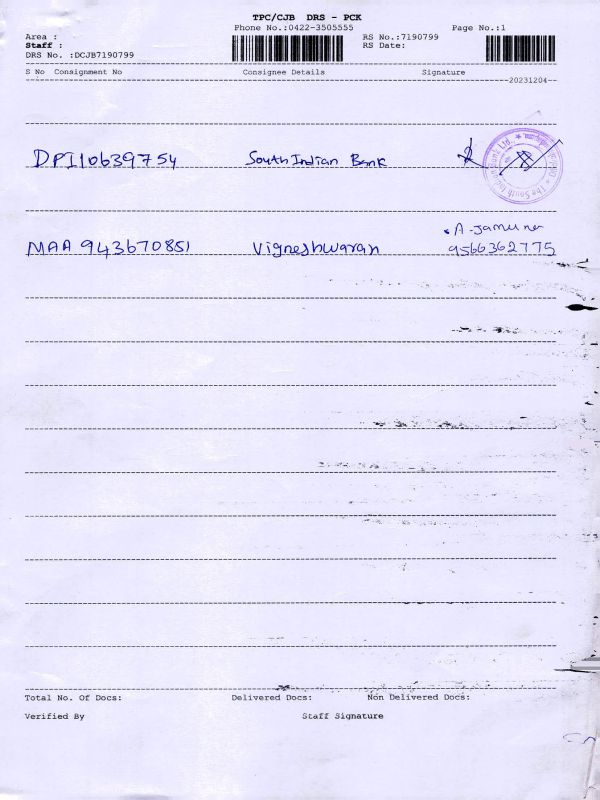 TPC/CJB DRS - PCK
Phone No.:0422-3505555
Page No.:1
Area :
RS No.:7190799
Staff :
RS Date:
DRS No. :DCJB7190799
S No Consignment No Consignee Details Signature
20231204
DPI10639754 South Indian Bank
The South Indian Bank Ltd.
A. Jamuna
MAA 943670851 Vigneshwaran 9566362775
Total No. Of Docs: Delivered Docs: Non Delivered Docs:
Verified By Staff Signature